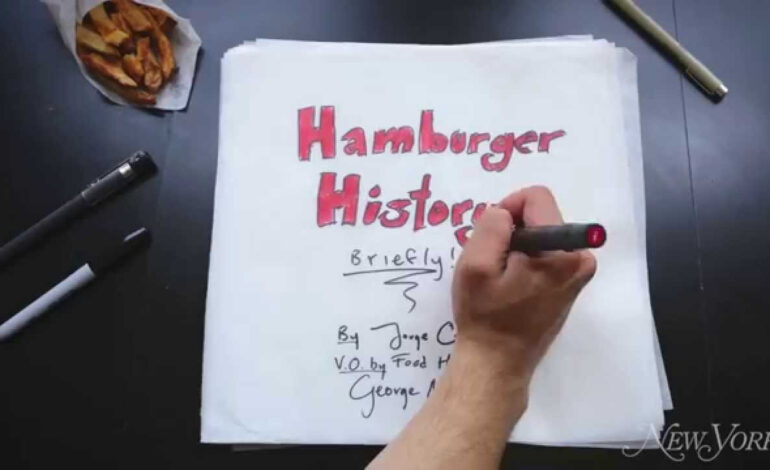 Hamburger
History
Briefly!
By Jorge C
V.O. by Food H
George
NEW YORK